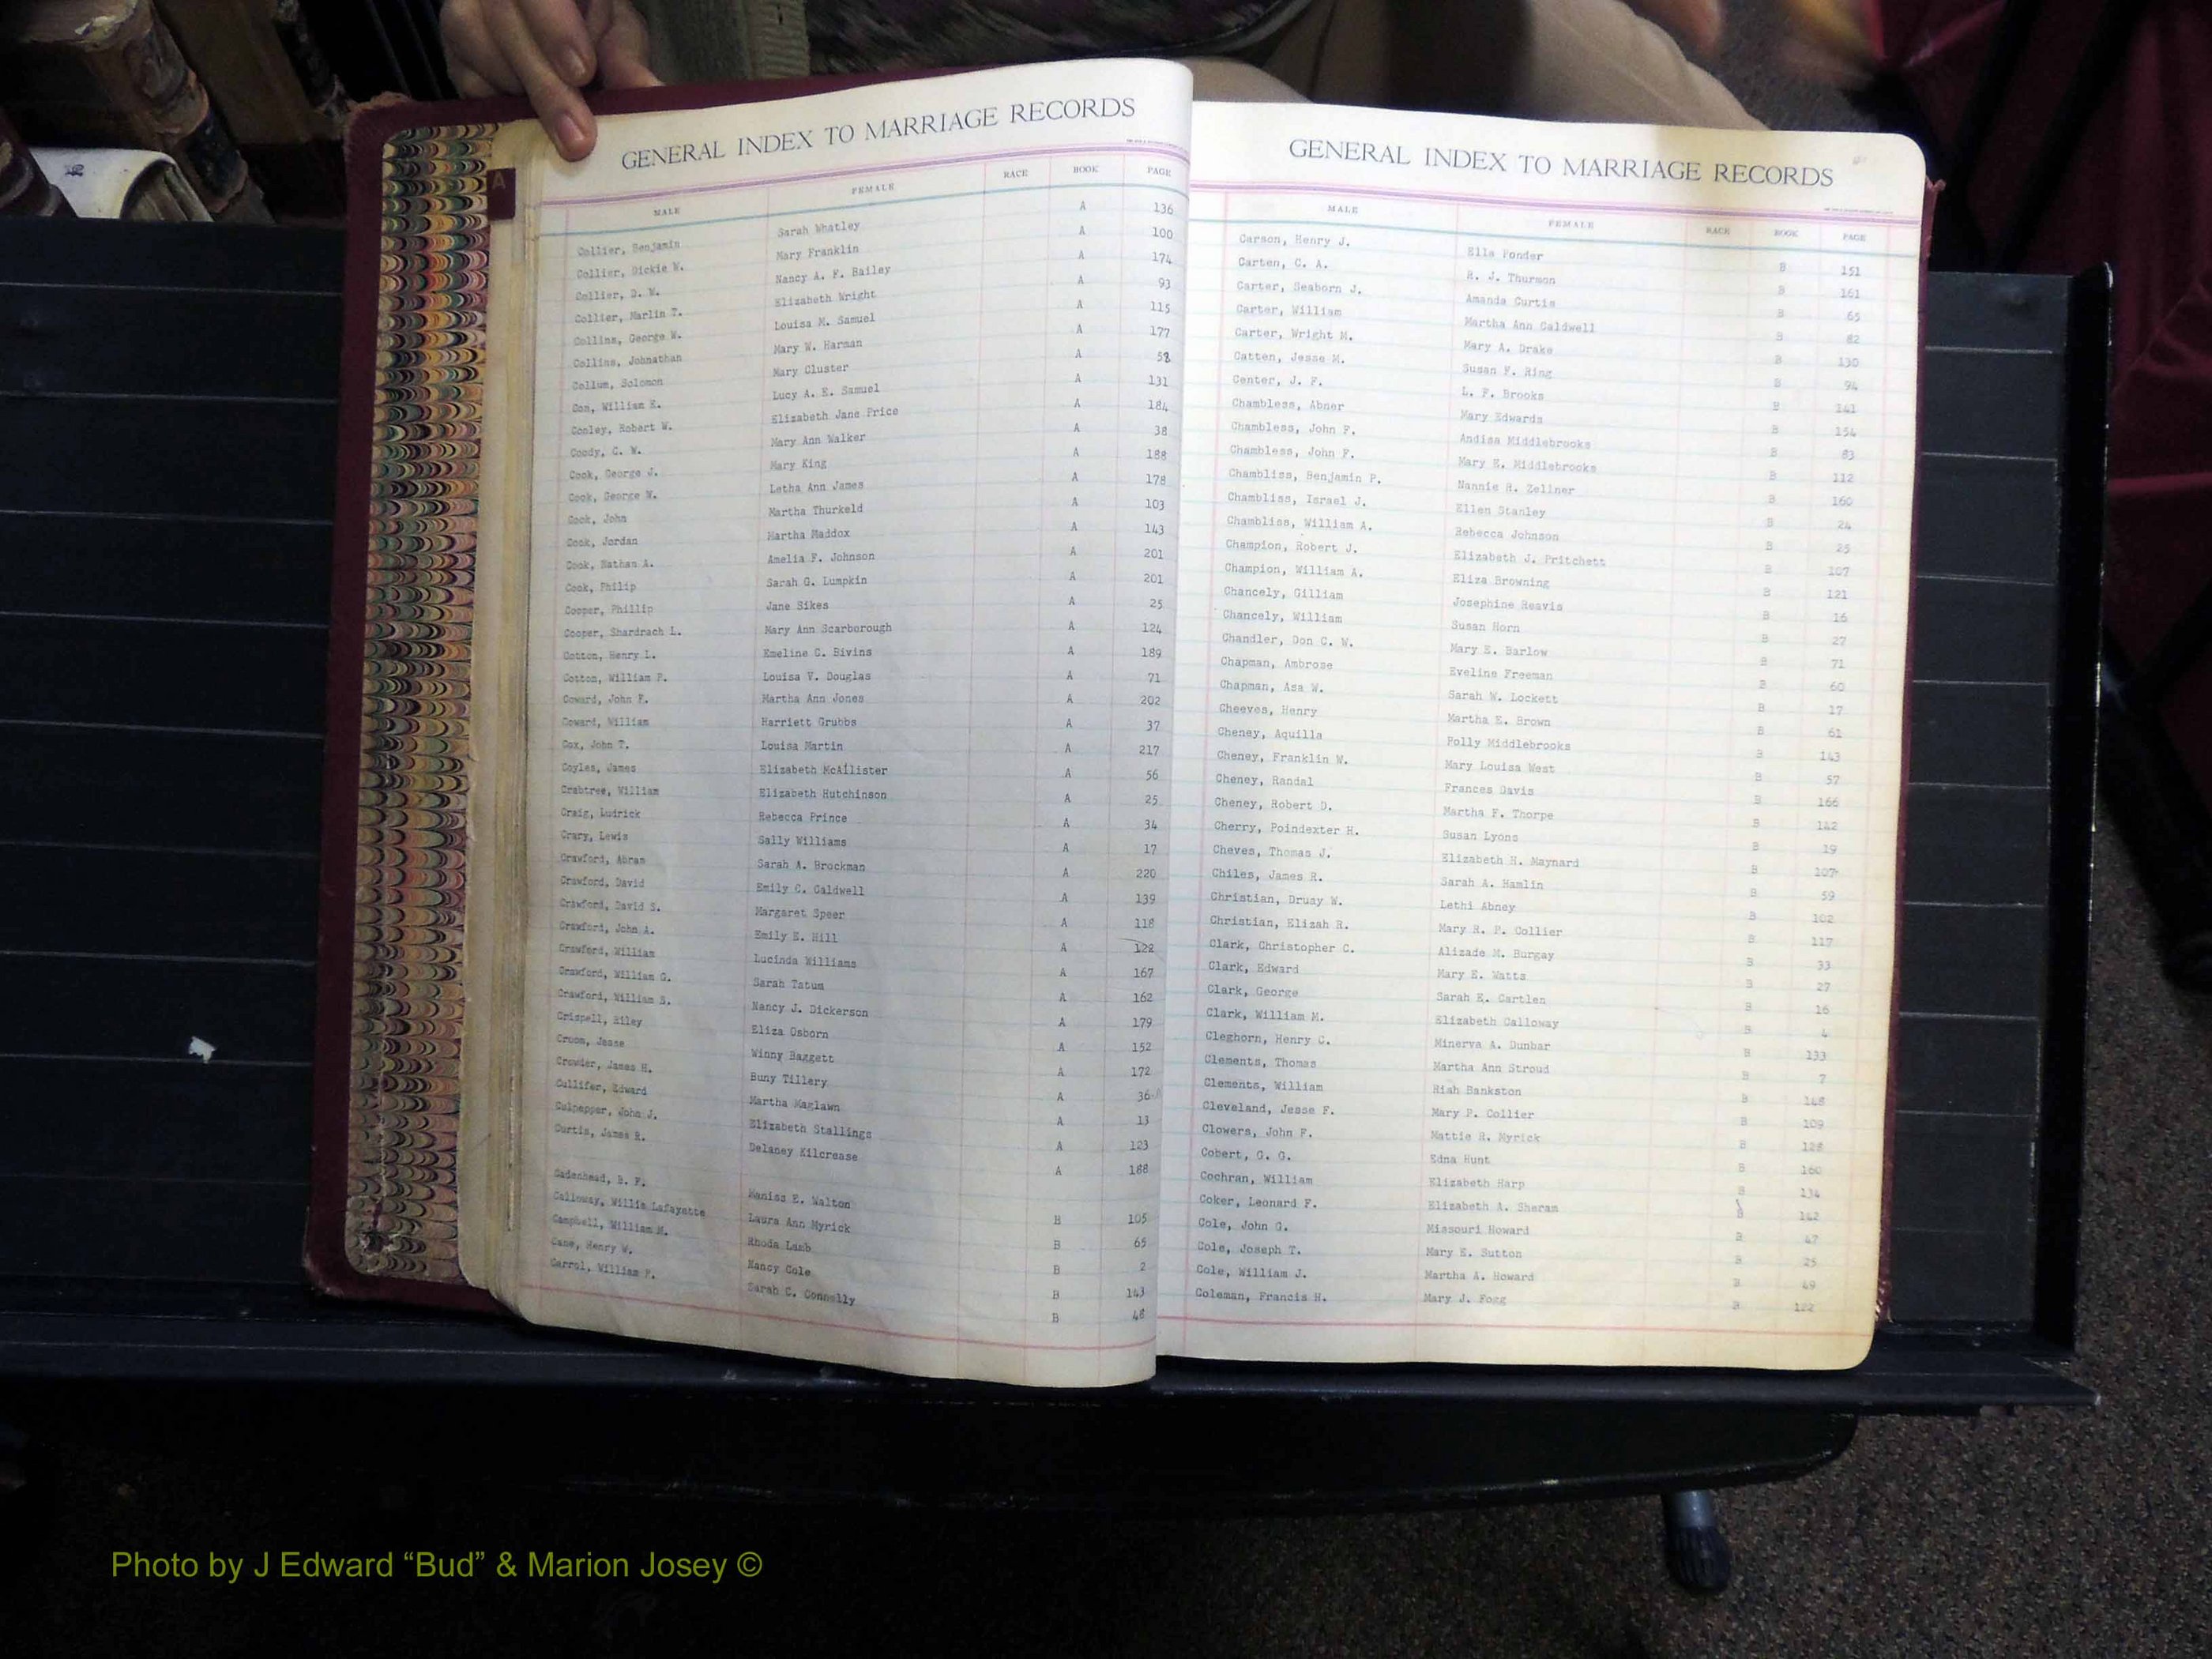 GENERAL INDEX TO MARRIAGE RECORDS
MALE FEMALE RACE BOOK PAGE
Collier, Benjamin Sarah Whatley A 136
Collier, Dickie W. Mary Franklin A 100
Collier, D. W. Nancy A. F. Bailey A 174
Collier, Marlin T. Elizabeth Wright A 93
Collins, George W. Louisa M. Samuel A 115
Collins, Johnathan Mary W. Harman A 177
Collum, Solomon Mary Cluster A 58
Con, William E. Lucy A. E. Samuel A 131
Conley, Robert W. Elizabeth Jane Price A 184
Coody, C. W. Mary Ann Walker A 38
Cook, George J. Mary King A 188
Cook, George W. Letha Ann James A 178
Cook, John Martha Thurkeld A 103
Cook, Jordan Martha Maddox A 143
Cook, Nathan A. Amelia F. Johnson A 201
Cook, Philip Sarah G. Lumpkin A 201
Cooper, Phillip Jane Sikes A 25
Cooper, Shardrach L. Mary Ann Scarborough A 124
Cotton, Henry L. Emeline C. Bivins A 189
Cotton, William P. Louisa V. Douglas A 71
Coward, John F. Martha Ann Jones A 202
Coward, William Harriett Grubbs A 37
Cox, John T. Louisa Martin A 217
Coyles, James Elizabeth McAllister A 56
Crabtree, William Elizabeth Hutchinson A 25
Craig, Ludrick Rebecca Prince A 34
Crary, Lewis Sally Williams A 17
Crawford, Abram Sarah A. Brockman A 220
Crawford, David Emily C. Caldwell A 139
Crawford, David S. Margaret Speer A 118
Crawford, John A. Emily E. Hill A 122
Crawford, William Lucinda Williams A 167
Crawford, William G. Sarah Tatum A 162
Crawford, William S. Nancy J. Dickerson A 179
Crispell, Riley Eliza Osborn A 152
Croom, Jesse Winny Baggett A 172
Crowder, James H. Buny Tillery A 36
Cullifer, Edward Martha Maglawn A 13
Culpepper, John J. Elizabeth Stallings A 123
Curtis, James R. Delaney Kilcrease A 188
Cadenhead, B. F. Maniss E. Walton B 105
Calloway, Willis Lafayette Laura Ann Myrick B 65
Campbell, William M. Rhoda Lamb B 2
Cane, Henry W. Nancy Cole B 143
Carrol, William P. Sarah C. Connolly B 48
GENERAL INDEX TO MARRIAGE RECORDS
MALE FEMALE RACE BOOK PAGE
Carson, Henry J. Ella Ponder B 151
Carten, C. A. R. J. Thurmon B 161
Carter, Seaborn J. Amanda Curtis B 65
Carter, William Martha Ann Caldwell B 82
Carter, Wright M. Mary A. Drake B 130
Catten, Jesse M. Susan F. Ring B 94
Center, J. F. L. F. Brooks B 141
Chambless, Abner Mary Edwards B 154
Chambless, John F. Andisa Middlebrooks B 83
Chambless, John F. Mary E. Middlebrooks B 112
Chambliss, Benjamin P. Nannie R. Zellner B 160
Chambliss, Israel J. Ellen Stanley B 24
Chambliss, William A. Rebecca Johnson B 25
Champion, Robert J. Elizabeth J. Pritchett B 107
Champion, William A. Eliza Browning B 121
Chancely, Gilliam Josephine Reavis B 16
Chancely, William Susan Horn B 27
Chandler, Don C. W. Mary E. Barlow B 71
Chapman, Ambrose Eveline Freeman B 60
Chapman, Asa W. Sarah W. Lockett B 17
Cheeves, Henry Martha E. Brown B 61
Cheney, Aquilla Polly Middlebrooks B 143
Cheney, Franklin W. Mary Louisa West B 57
Cheney, Randal Frances Davis B 166
Cheney, Robert D. Martha F. Thorpe B 142
Cherry, Poindexter H. Susan Lyons B 19
Cheves, Thomas J. Elizabeth H. Maynard B 107
Chiles, James R. Sarah A. Hamlin B 59
Christian, Druay W. Lethi Abney B 102
Christian, Elizah R. Mary R. P. Collier B 117
Clark, Christopher C. Alizade M. Burgay B 33
Clark, Edward Mary E. Watts B 27
Clark, George Sarah E. Cartlen B 16
Clark, William M. Elizabeth Calloway B 4
Cleghorn, Henry C. Minerva A. Dunbar B 133
Clements, Thomas Martha Ann Stroud B 7
Clements, William Riah Bankston B 148
Cleveland, Jesse F. Mary P. Collier B 109
Clowers, John F. Mattie R. Myrick B 128
Cobert, G. G. Edna Hunt B 160
Cochran, William Elizabeth Harp B 134
Coker, Leonard F. Elizabeth A. Sheram B 142
Cole, John G. Missouri Howard B 47
Cole, Joseph T. Mary E. Sutton B 25
Cole, William J. Martha A. Howard B 49
Coleman, Francis H. Mary J. Fogg B 122
Photo by J Edward “Bud” & Marion Josey ©